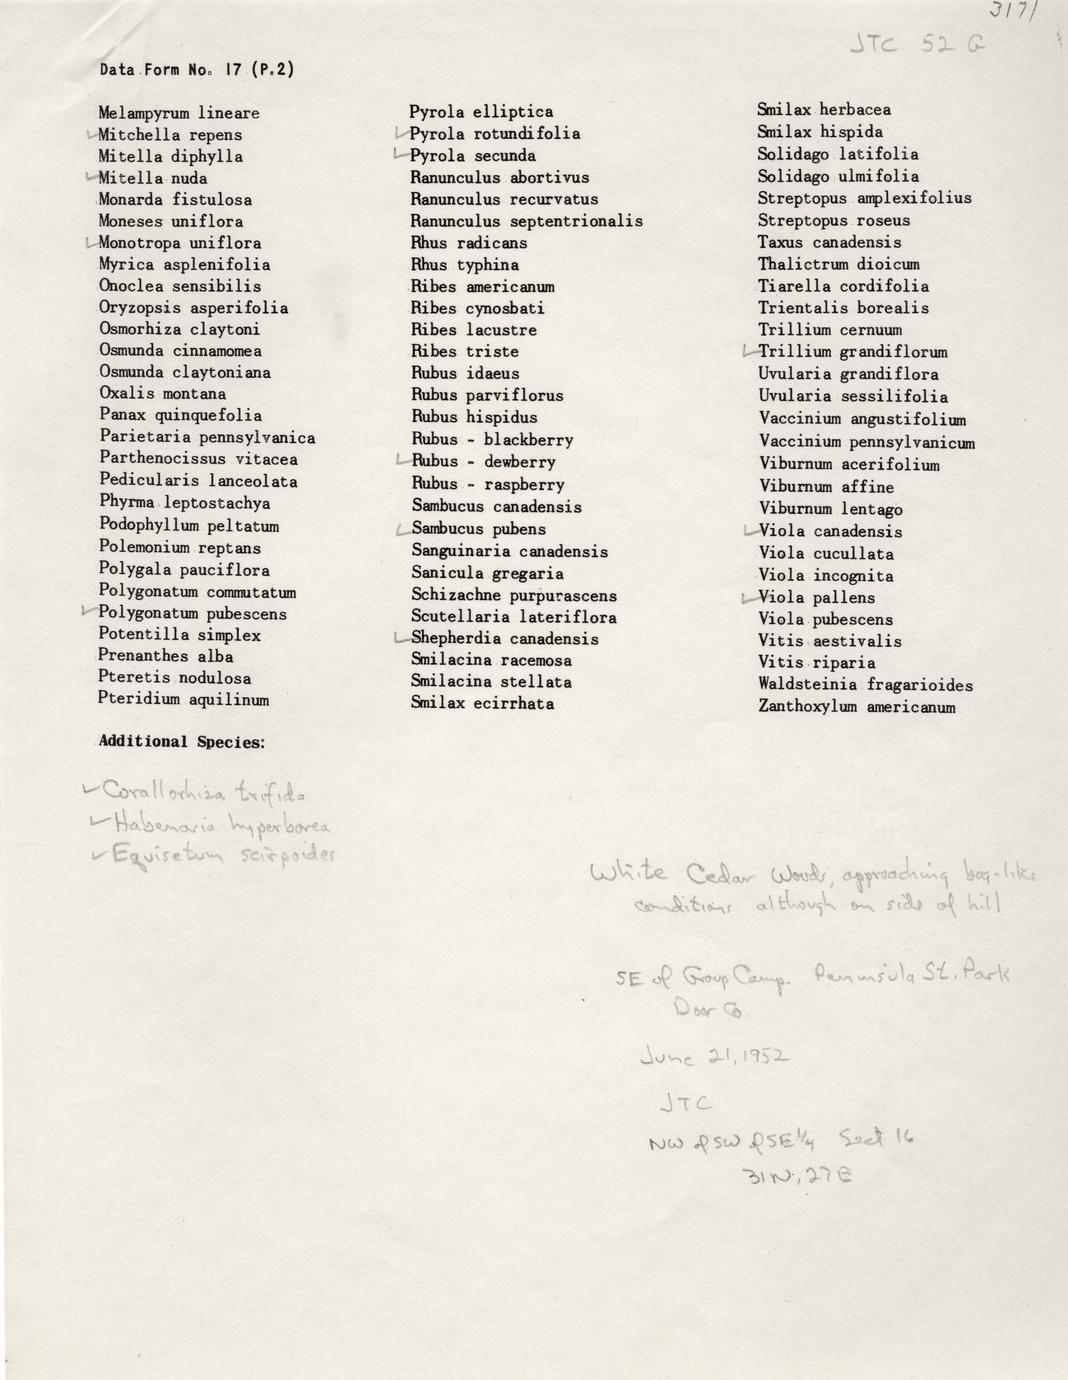 3171
JTC 52 G
Data Form No. 17 (P.2)
Melampyrum lineare
✓Mitchella repens
Mitella diphylla
✓Mitella nuda
Monarda fistulosa
Moneses uniflora
✓Monotropa uniflora
Myrica asplenifolia
Onoclea sensibilis
Oryzopsis asperifolia
Osmorhiza claytoni
Osmunda cinnamomea
Osmunda claytoniana
Oxalis montana
Panax quinquefolia
Parietaria pennsylvanica
Parthenocissus vitacea
Pedicularis lanceolata
Phyrma leptostachya
Podophyllum peltatum
Polemonium reptans
Polygala pauciflora
Polygonatum commutatum
✓Polygonatum pubescens
Potentilla simplex
Prenanthes alba
Pteretis nodulosa
Pteridium aquilinum
Pyrola elliptica
✓Pyrola rotundifolia
✓Pyrola secunda
Ranunculus abortivus
Ranunculus recurvatus
Ranunculus septentrionalis
Rhus radicans
Rhus typhina
Ribes americanum
Ribes cynosbati
Ribes lacustre
Ribes triste
Rubus idaeus
Rubus parviflorus
Rubus hispidus
Rubus - blackberry
✓Rubus - dewberry
Rubus - raspberry
Sambucus canadensis
✓Sambucus pubens
Sanguinaria canadensis
Sanicula gregaria
Schizachne purpurascens
Scutellaria lateriflora
✓Shepherdia canadensis
Smilacina racemosa
Smilacina stellata
Smilax ecirrhata
Smilax herbacea
Smilax hispida
Solidago latifolia
Solidago ulmifolia
Streptopus amplexifolius
Streptopus roseus
Taxus canadensis
Thalictrum dioicum
Tiarella cordifolia
Trientalis borealis
Trillium cernuum
✓Trillium grandiflorum
Uvularia grandiflora
Uvularia sessilifolia
Vaccinium angustifolium
Vaccinium pennsylvanicum
Viburnum acerifolium
Viburnum affine
Viburnum lentago
✓Viola canadensis
Viola cucullata
Viola incognita
✓Viola pallens
Viola pubescens
Vitis aestivalis
Vitis riparia
Waldsteinia fragarioides
Zanthoxylum americanum
Additional Species:
✓Corallorhiza trifida
✓Habenaria hyperborea
✓Equisetum scirpoides
White Cedar Woods, approaching bog-like
conditions although on side of hill
SE of Group Camp. Peninsula St. Park
Door Co.
June 21, 1952
JTC
NW of SW of SE 1/4 Sect 16
31N, 27E